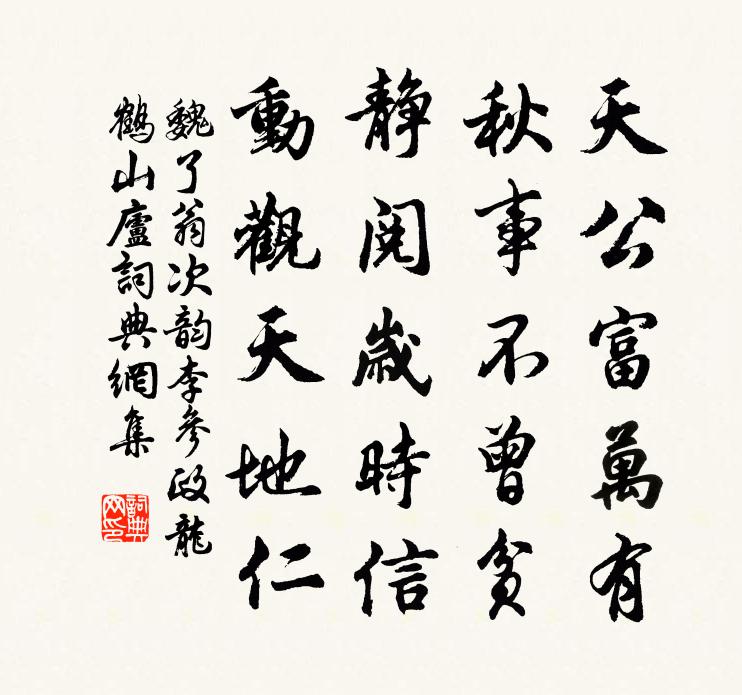 天公富萬有
秋事不曾貧
靜閱歲時信
動觀天地仁
魏了翁次韵李參政龍
鶴山廬詞典網集
詞典網印